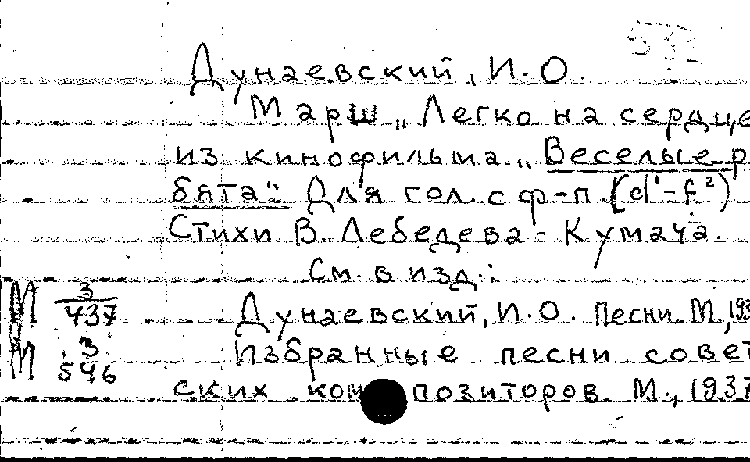 532
Дунаевский, И.О.
Марш „Легко на сердце
из кинофильма „Веселые ре
бята": Для гол. с ф-п. (d¹-f²)
Стихи В. Лебедева-Кумача.
См. в изд.:
М 3/437 Дунаевский, И.О. Песни. М., 193
М 3/546 Избранные песни совет
ских композиторов. М., 1937